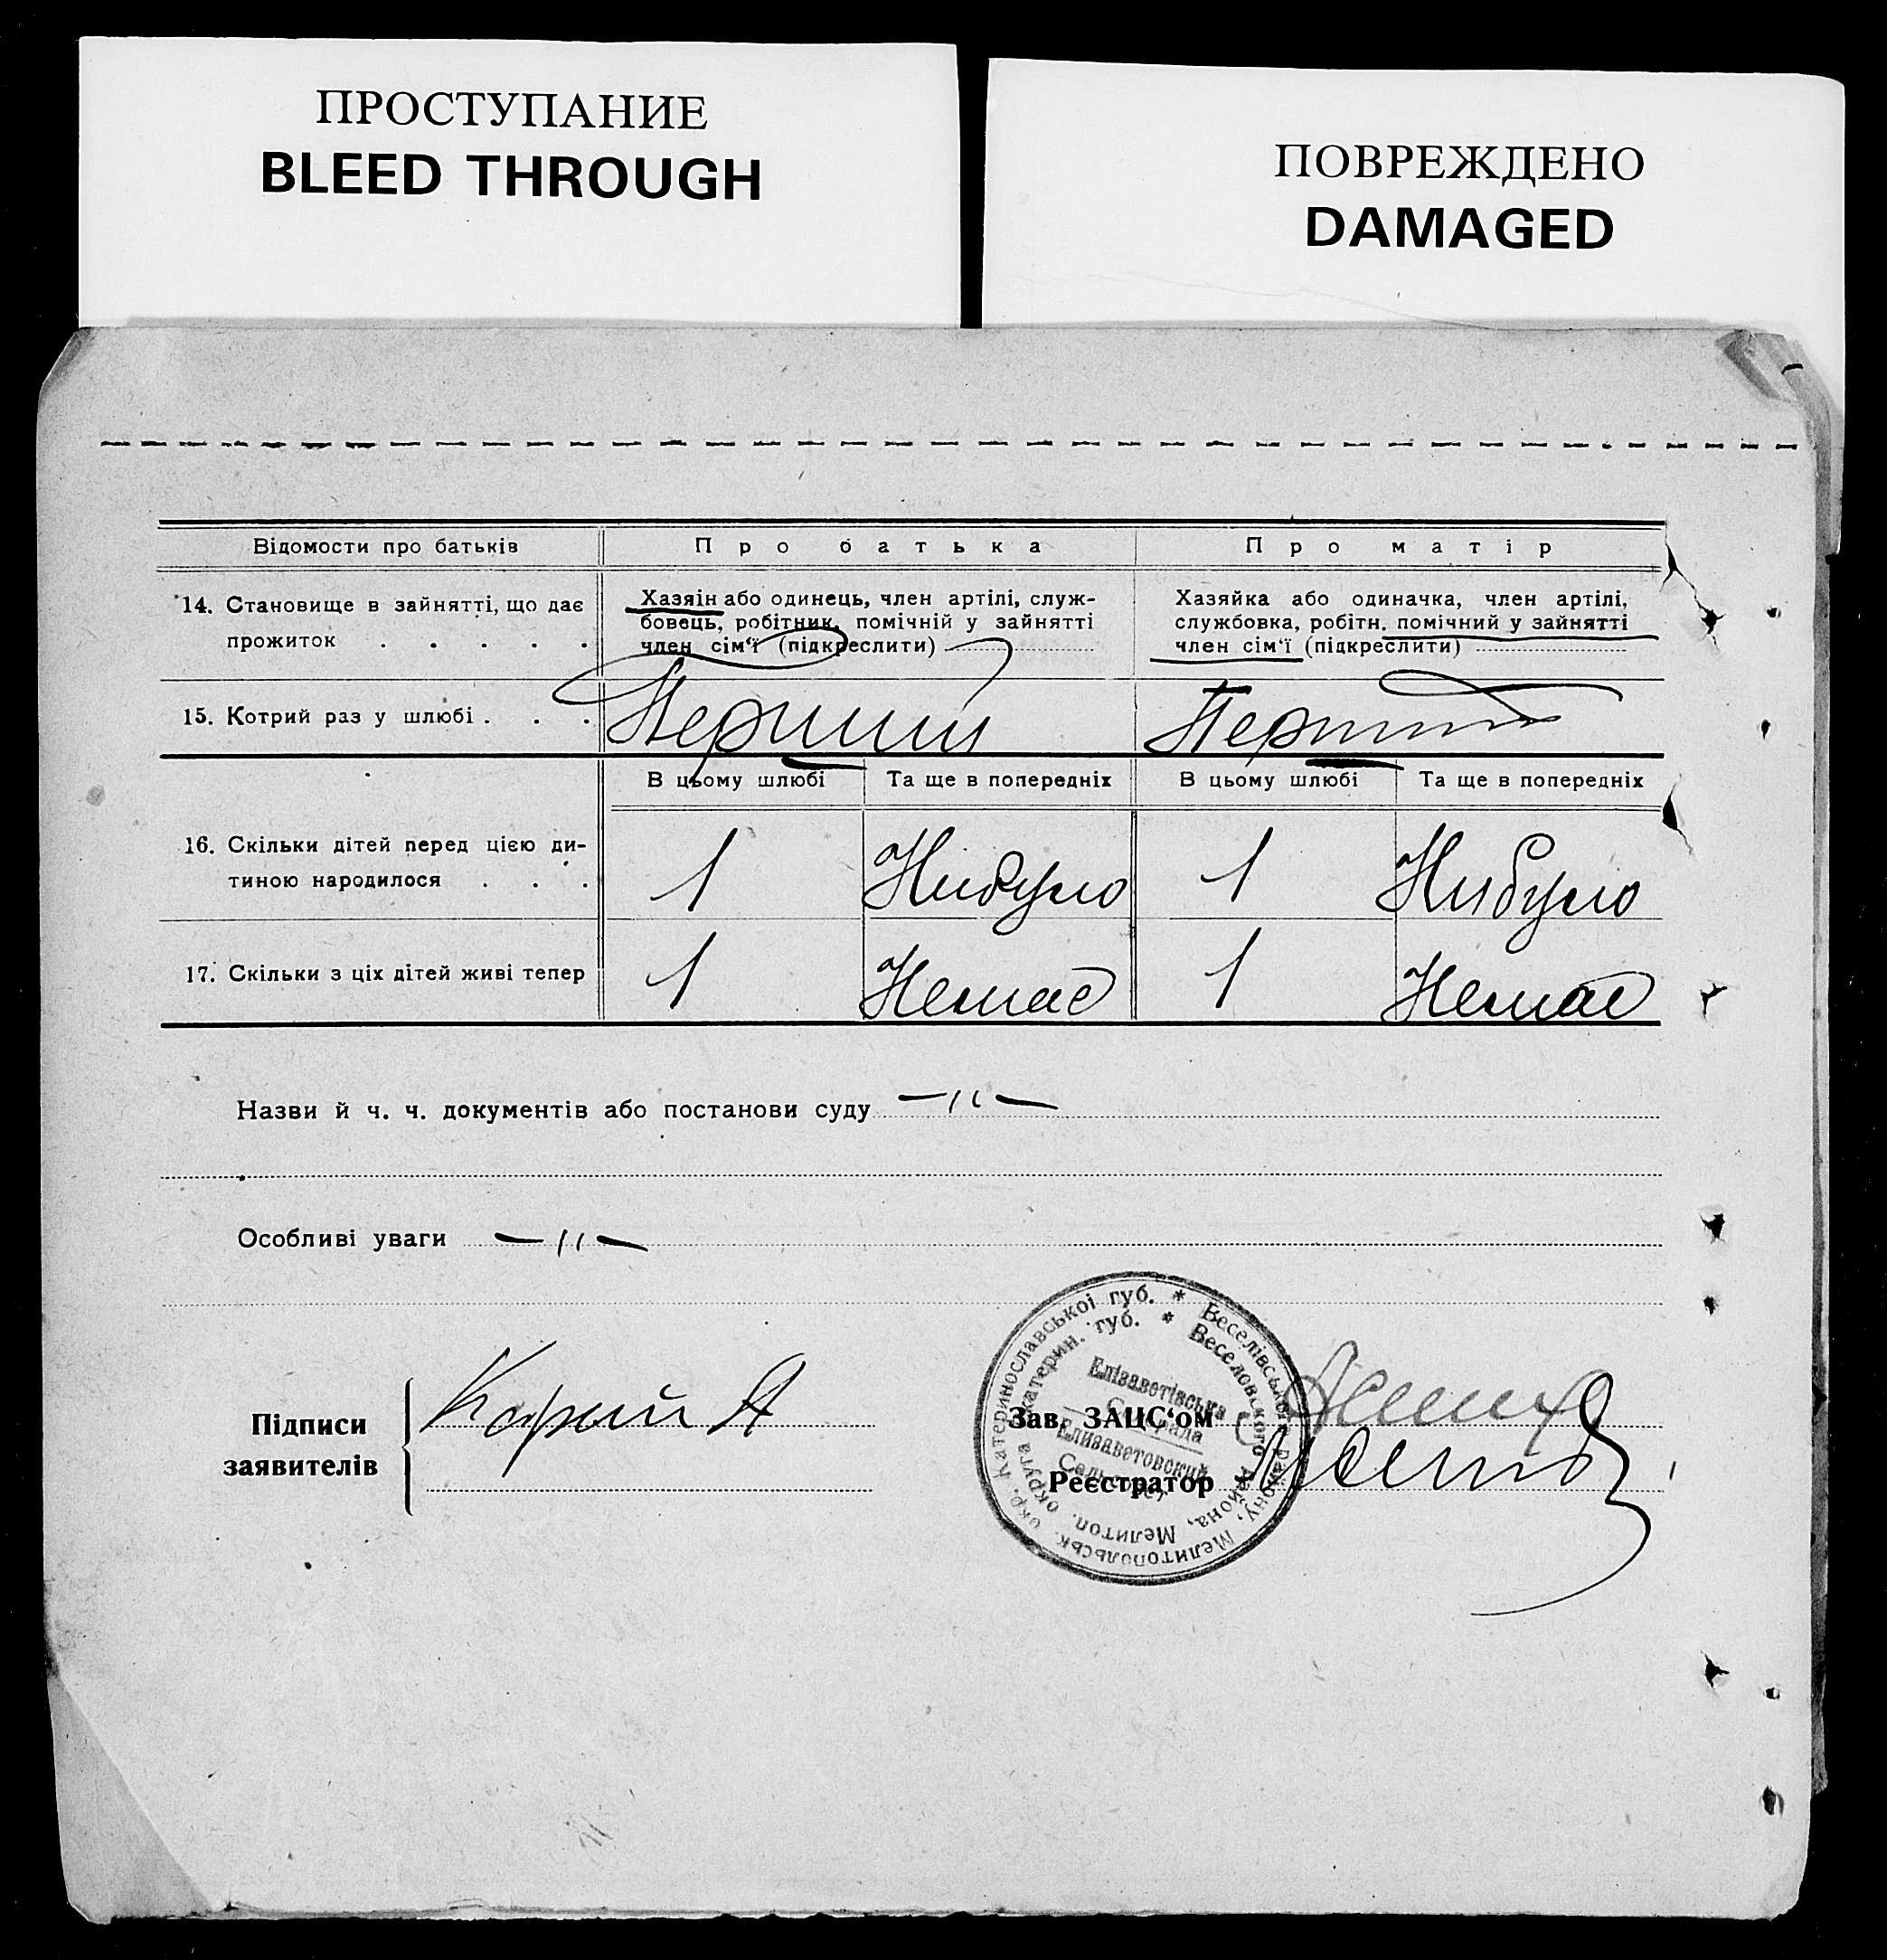 ПРОСТУПАНИЕ
BLEED THROUGH
ПОВРЕЖДЕНО
DAMAGED
Відомости про батьків
Про батька
Про матір
14. Становище в зайнятті, що дає
прожиток . . . . .
Хазяін або одинець, член артілі, служ-
бовець, робітник, помічній у зайнятті
член сім‘ї (підкреслити)
Хазяйка або одиначка, член артілі,
службовка, робітн. помічний у зайнятті
член сім‘ї (підкреслити)
15. Котрий раз у шлюбі . . .
Перший
Перший
В цьому шлюбі
Та ще в попередніх
В цьому шлюбі
Та ще в попередніх
16. Скільки дітей перед цією ди-
тиною народилося . . .
1
Нибуло
1
Нибуло
17. Скільки з ціх дітей живі тепер
1
Немає
1
Немає
Назви й ч. ч. документів або постанови суду —"—
Особливі уваги —"—
Підписи
заявителів
Корий А
Зав. ЗАЦС‘ом
Реєстратор
Веселівського району, Мелитопольськ. окр. Катеринославськоі губ. *
Веселовского района, Мелитоп. округа Катерин. губ. *
Елізаветівська
Сільрада
Елизаветовский
Сельсовет